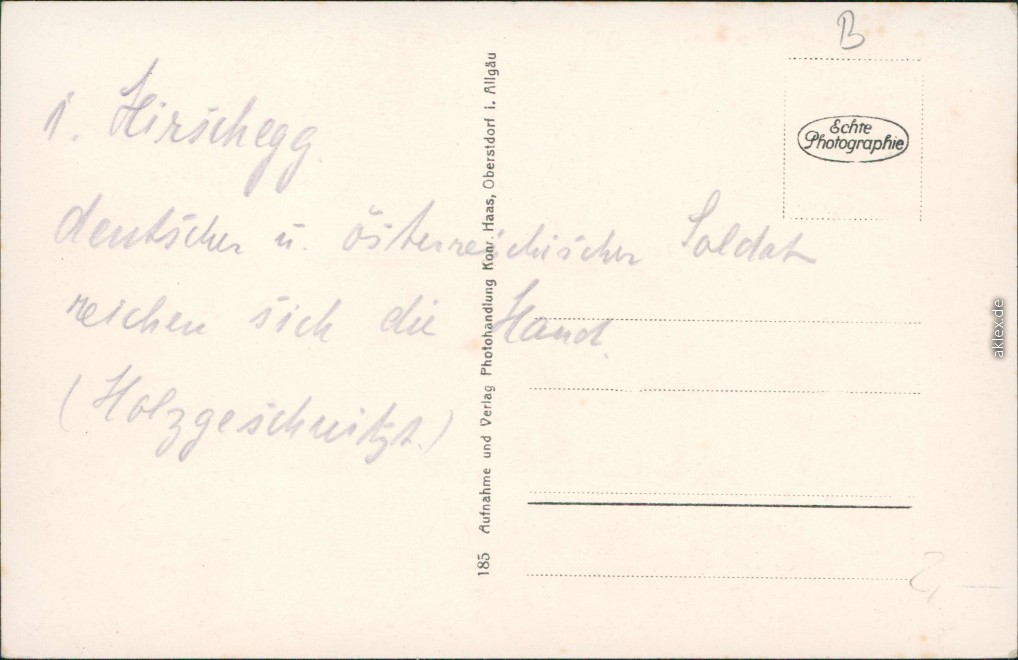 i. Hirschegg
deutscher u. österreichischer Soldat
reichen sich die Hand.
(Holzgeschnitzt.)
185 Aufnahme und Verlag Photohandlung Konr. Haas, Oberstdorf i. Allgäu
B
Echte
Photographie
2,—
aklex.de